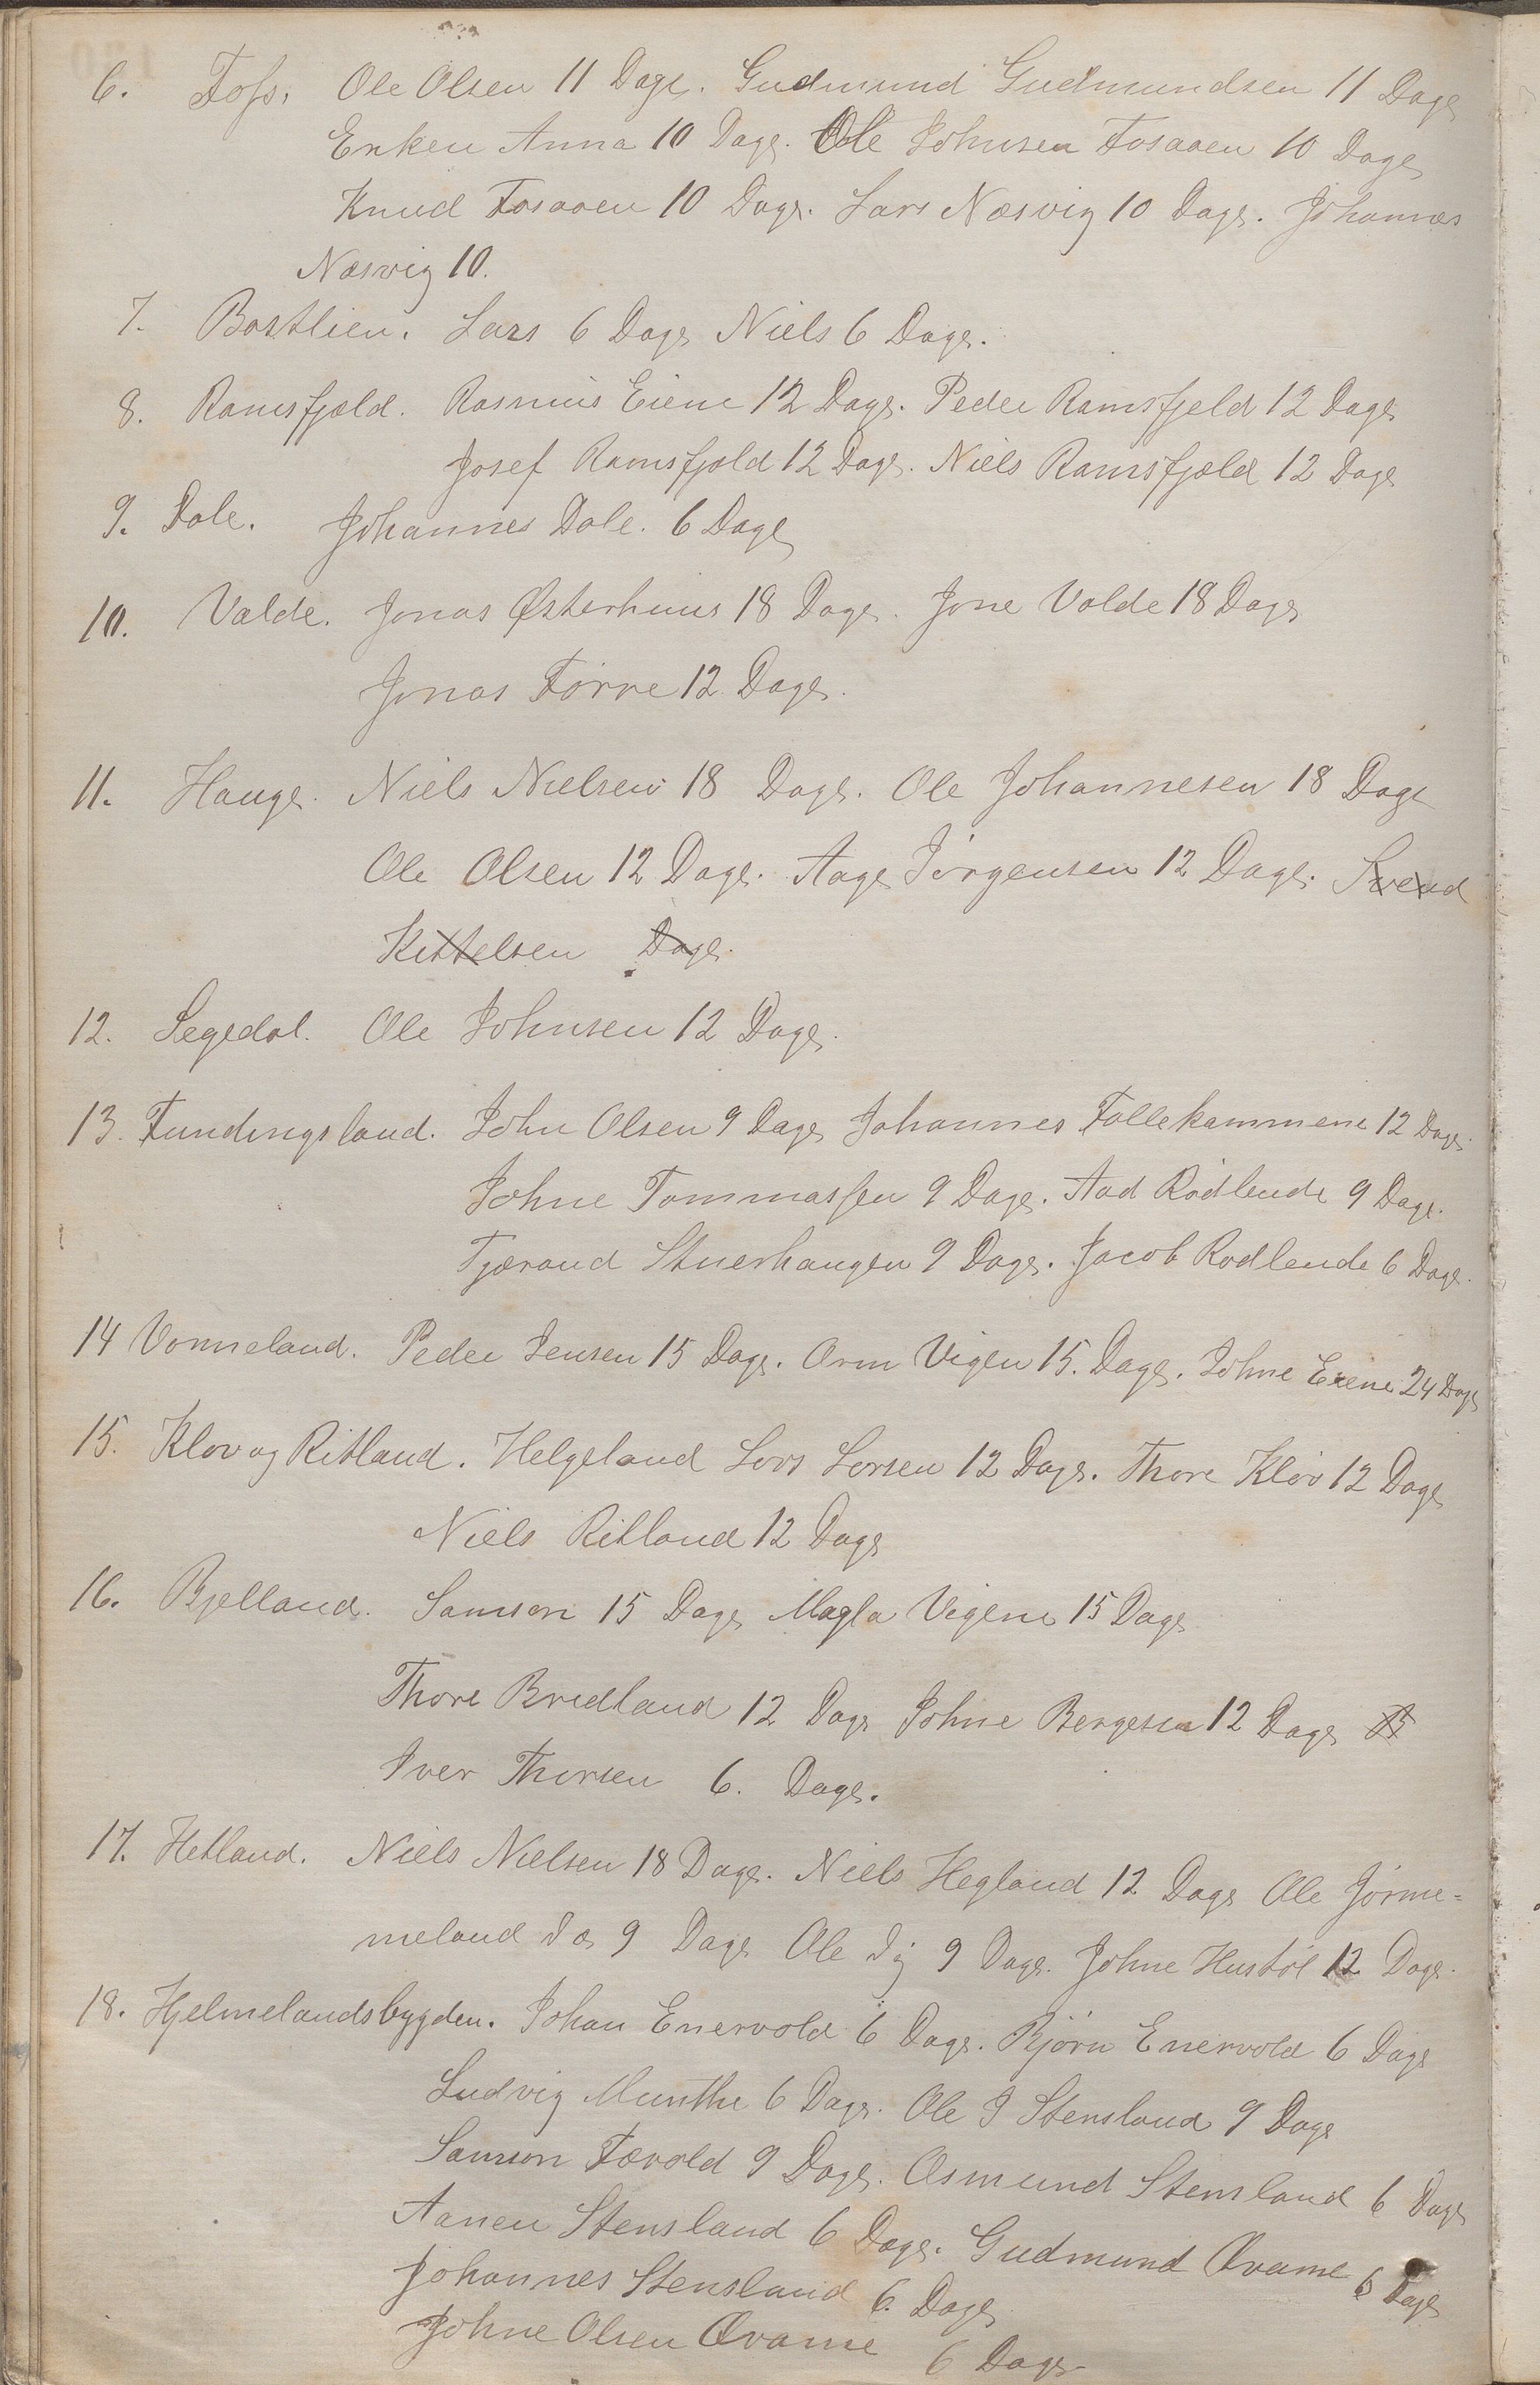 6. Foss. Ole Olsen 11 Dage. Gudmund Gudmundsen 11 Dage
Enken Anna 10 Dage. Ole Johnsen Fosaaen 10 Dage
Knud Fosaaen 10 Dage. Lars Næsvig 10 Dage. Johannes
Næsvig 10.
7. Bostlien. Lars 6 Dage Niels 6 Dage.
8. Ramsfjeld. Rasmus Eiene 12 Dage. Peder Ramsfjeld 12 Dage
Josef Ramsfjeld 12 Dage. Niels Ramsfjeld 12 Dage
9. Dale. Johannes Dale. 6 Dage
10. Valde. Jonas Østerhuus 18 Dage. Jone Valde 18 Dage
Jonas Førre 12 Dage.
11. Hauge. Niels Nielsen 18 Dage. Ole Johannesen 18 Dage
Ole Olsen 12 Dage. Aage Jørgensen 12 Dage. Svend
Kittelsen Dage.
12. Segedal. Ole Johnsen 12 Dage.
13. Fundingsland. John Olsen 9 Dage Johannes Follekammene 12 Dage.
Johne Tommassen 9 Dage. Aad Rødlende 9 Dage.
Tjærand Stuerhaugen 9 Dage. Jacob Rødlende 6 Dage.
14 Vormeland. Peder Jensen 15 Dage. Orm Vigen 15. Dage. Johne Eiene 24 Dage
15. Kløv og Ritland. Helgeland Lars Larsen 12 Dage. Thore Kløv 12 Dage
Niels Ritland 12 Dage
16. Bjelland. Samson 15 Dage Magla Vigene 15 Dage
Thore Bredland 12 Dage Johne Bergesen 12 Dage
Iver Thorsen 6. Dage.
17. Hetland. Niels Nielsen 18 Dage. Niels Hegland 12 Dage Ole Jørme-
meland 9 Dage Ole 9 Dage. Johne Hustøl 12 Dage.
18. Hjelmelandsbygden. Johan Enervold 6 Dage. Bjørn Enervold 6 Dage
Ludvig Munthe 6 Dage. Ole J Stensland 9 Dage
Samson Færold 9 Dage. Osmund Stensland 6 Dage
Aanen Stensland 6 Dage. Gudmund Øvame 6 Dage
Johannes Stensland 6. Dage
Johne Olsen Øvame 6 Dage